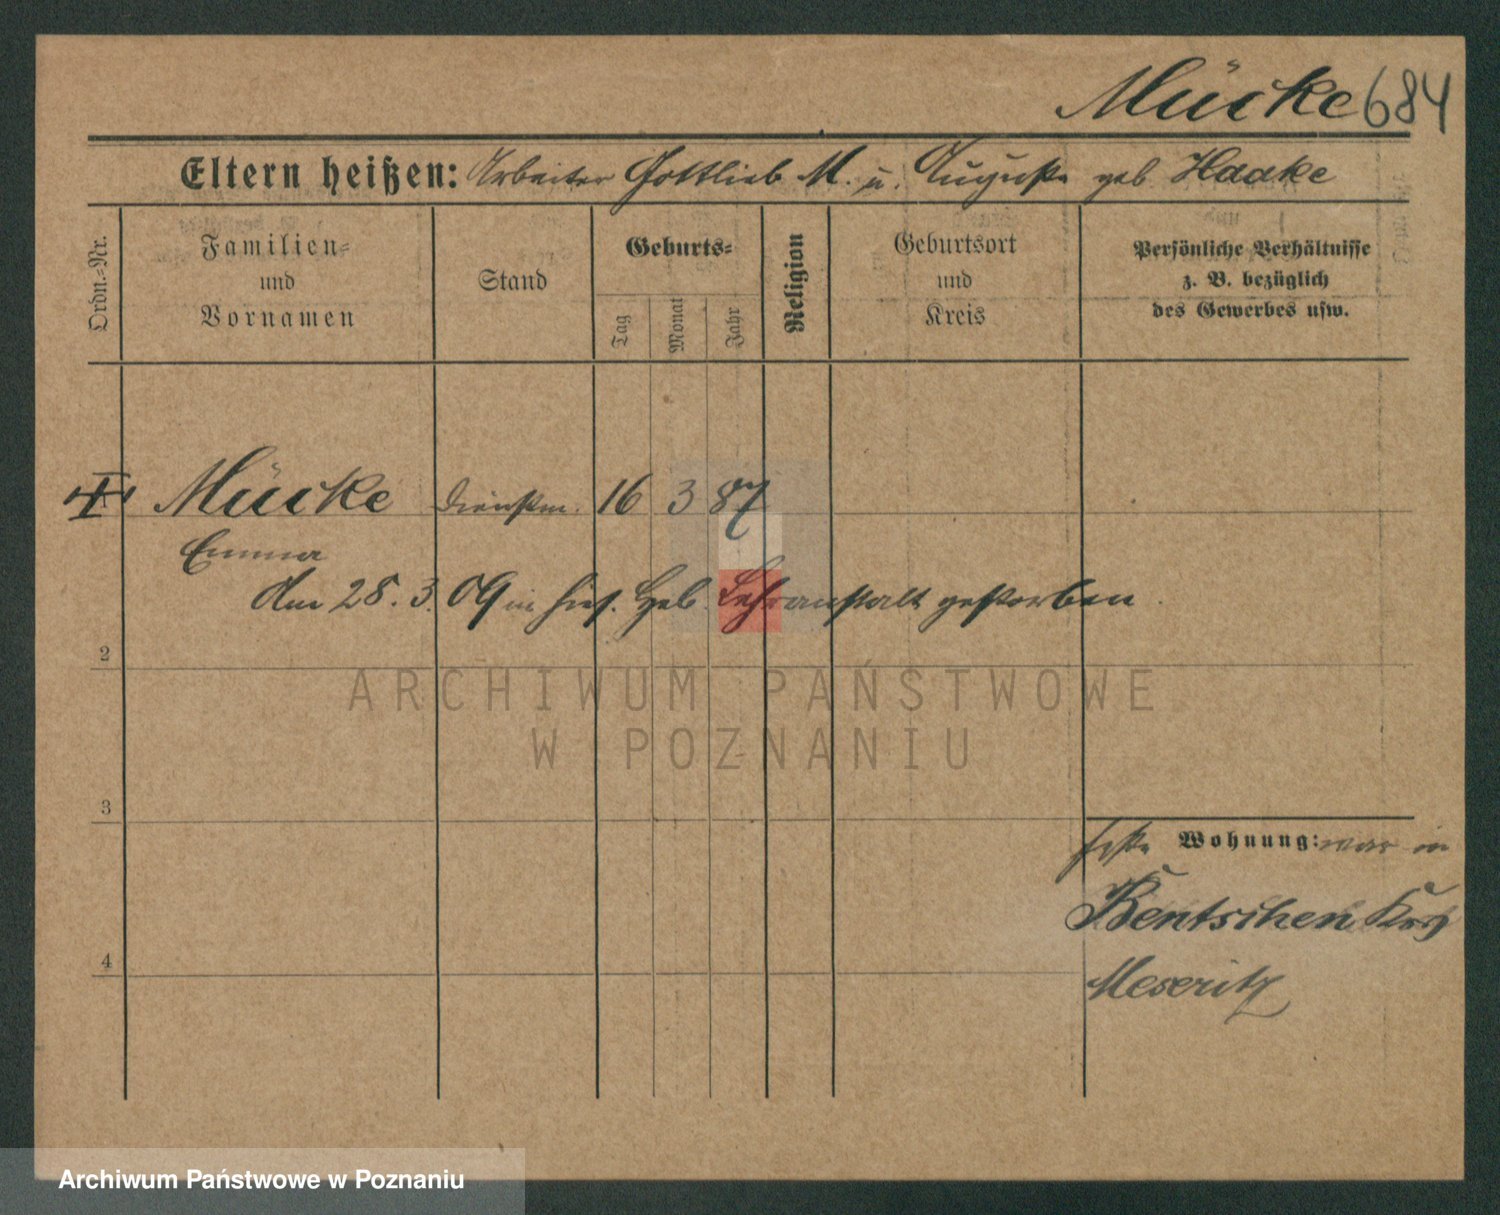 Mücke 684
Eltern heißen: Arbeiter Gottlieb M. u. Auguste geb Haake
Ordn.-Nr.
Familien-
und
Vornamen
Stand
Geburts-
Tag
Monat
Jahr
Religion
Geburtsort
und
Kreis
Persönliche Verhältnisse
z. B. bezüglich
des Gewerbes usw.
Mücke Dienstm. 16 3 87
Emma
Am 28. 3. 09 in hies. Heb. Lehranstalt gestorben.
2
ARCHIWUM PAŃSTWOWE
W POZNANIU
3
feste Wohnung: war in
Bentschen Krs
4
Meseritz
Archiwum Państwowe w Poznaniu